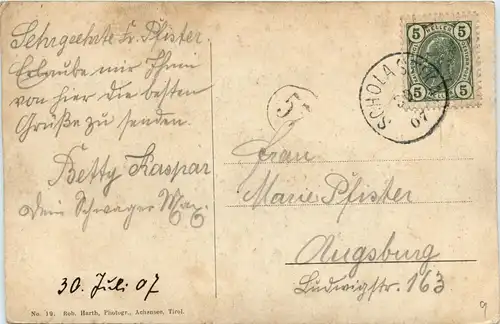 Sehrgeehrte Fr. Pfister.
Erlaube mir Ihnen
von hier die besten
Grüße zu senden.
Betty Kaspar
Dein Schwager Max.
30. Juli 07
No. 19. Rob. Harth, Photogr., Achensee, Tirol.
5 HELLER 5
5 5
SCHOLAST
07
5
Frau
Marie Pfister
Augsburg
Ludwigstr. 163
9